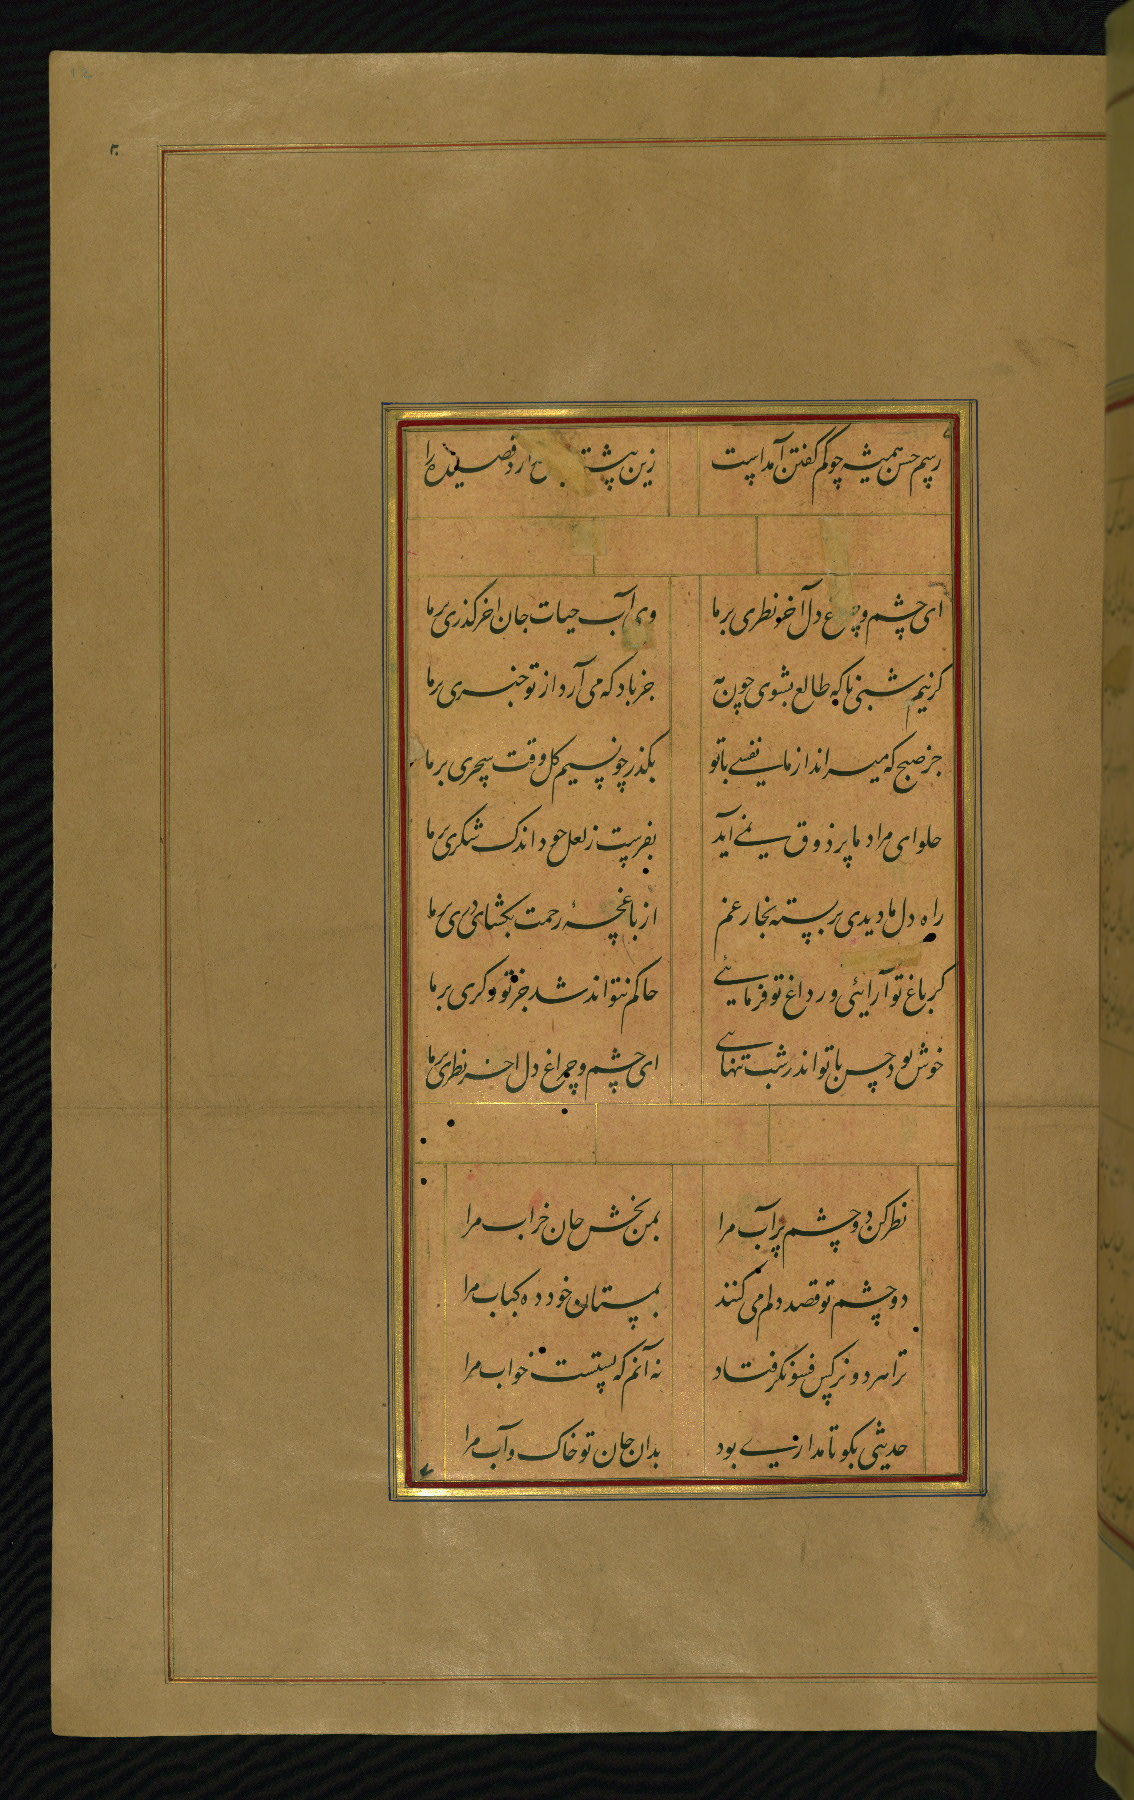 ۲
رسم حسن همیشه چو کم گفتن آمداست زین بیشتر دارد قصیده را
ای چشم و چراغ دل آخر نظری بر ما وی آب حیات جان اخر گذری بر ما
کر نیم شبی ناکه طالع بشوی چون مه جز باد که می آرد از تو خبری بر ما
جز صبح که میراند از ما نفسی با تو بکذر چو نسیم کل وقت سحری بر ما
حلوای مراد ما پر ذوق نمی آید بفرست ز لعل خود اندک شکری بر ما
راه دل ما دیدی بر بسته بخار غم از باغچهٔ رحمت بکشای دری بر ما
کر باغ تو آرایی ور داغ تو فرمایی حاکم نتواند شد جز تو دکری بر ما
خوش بود حسن با تو اندر شب تنهایی ای چشم و چراغ دل اخر نظری بر ما
نظر کن دو چشم پر آب مرا بمن بخش جان خراب مرا
دو چشم تو قصد دلم می کنند بمستان خود ده کباب مرا
ترا هر دو نرکس فسونکر فتاد نه آنم که بستست خواب مرا
حدیثی بکو تا مدارنی بود بدان جان تو خاک و آب مرا